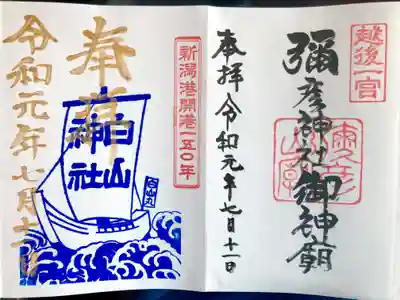 越後一宮
彌彦神社御神廟
奉拝令和元年七月十一日
新潟港開港一五〇年
奉拝
白山
神社
白山丸
令和元年七月十一日